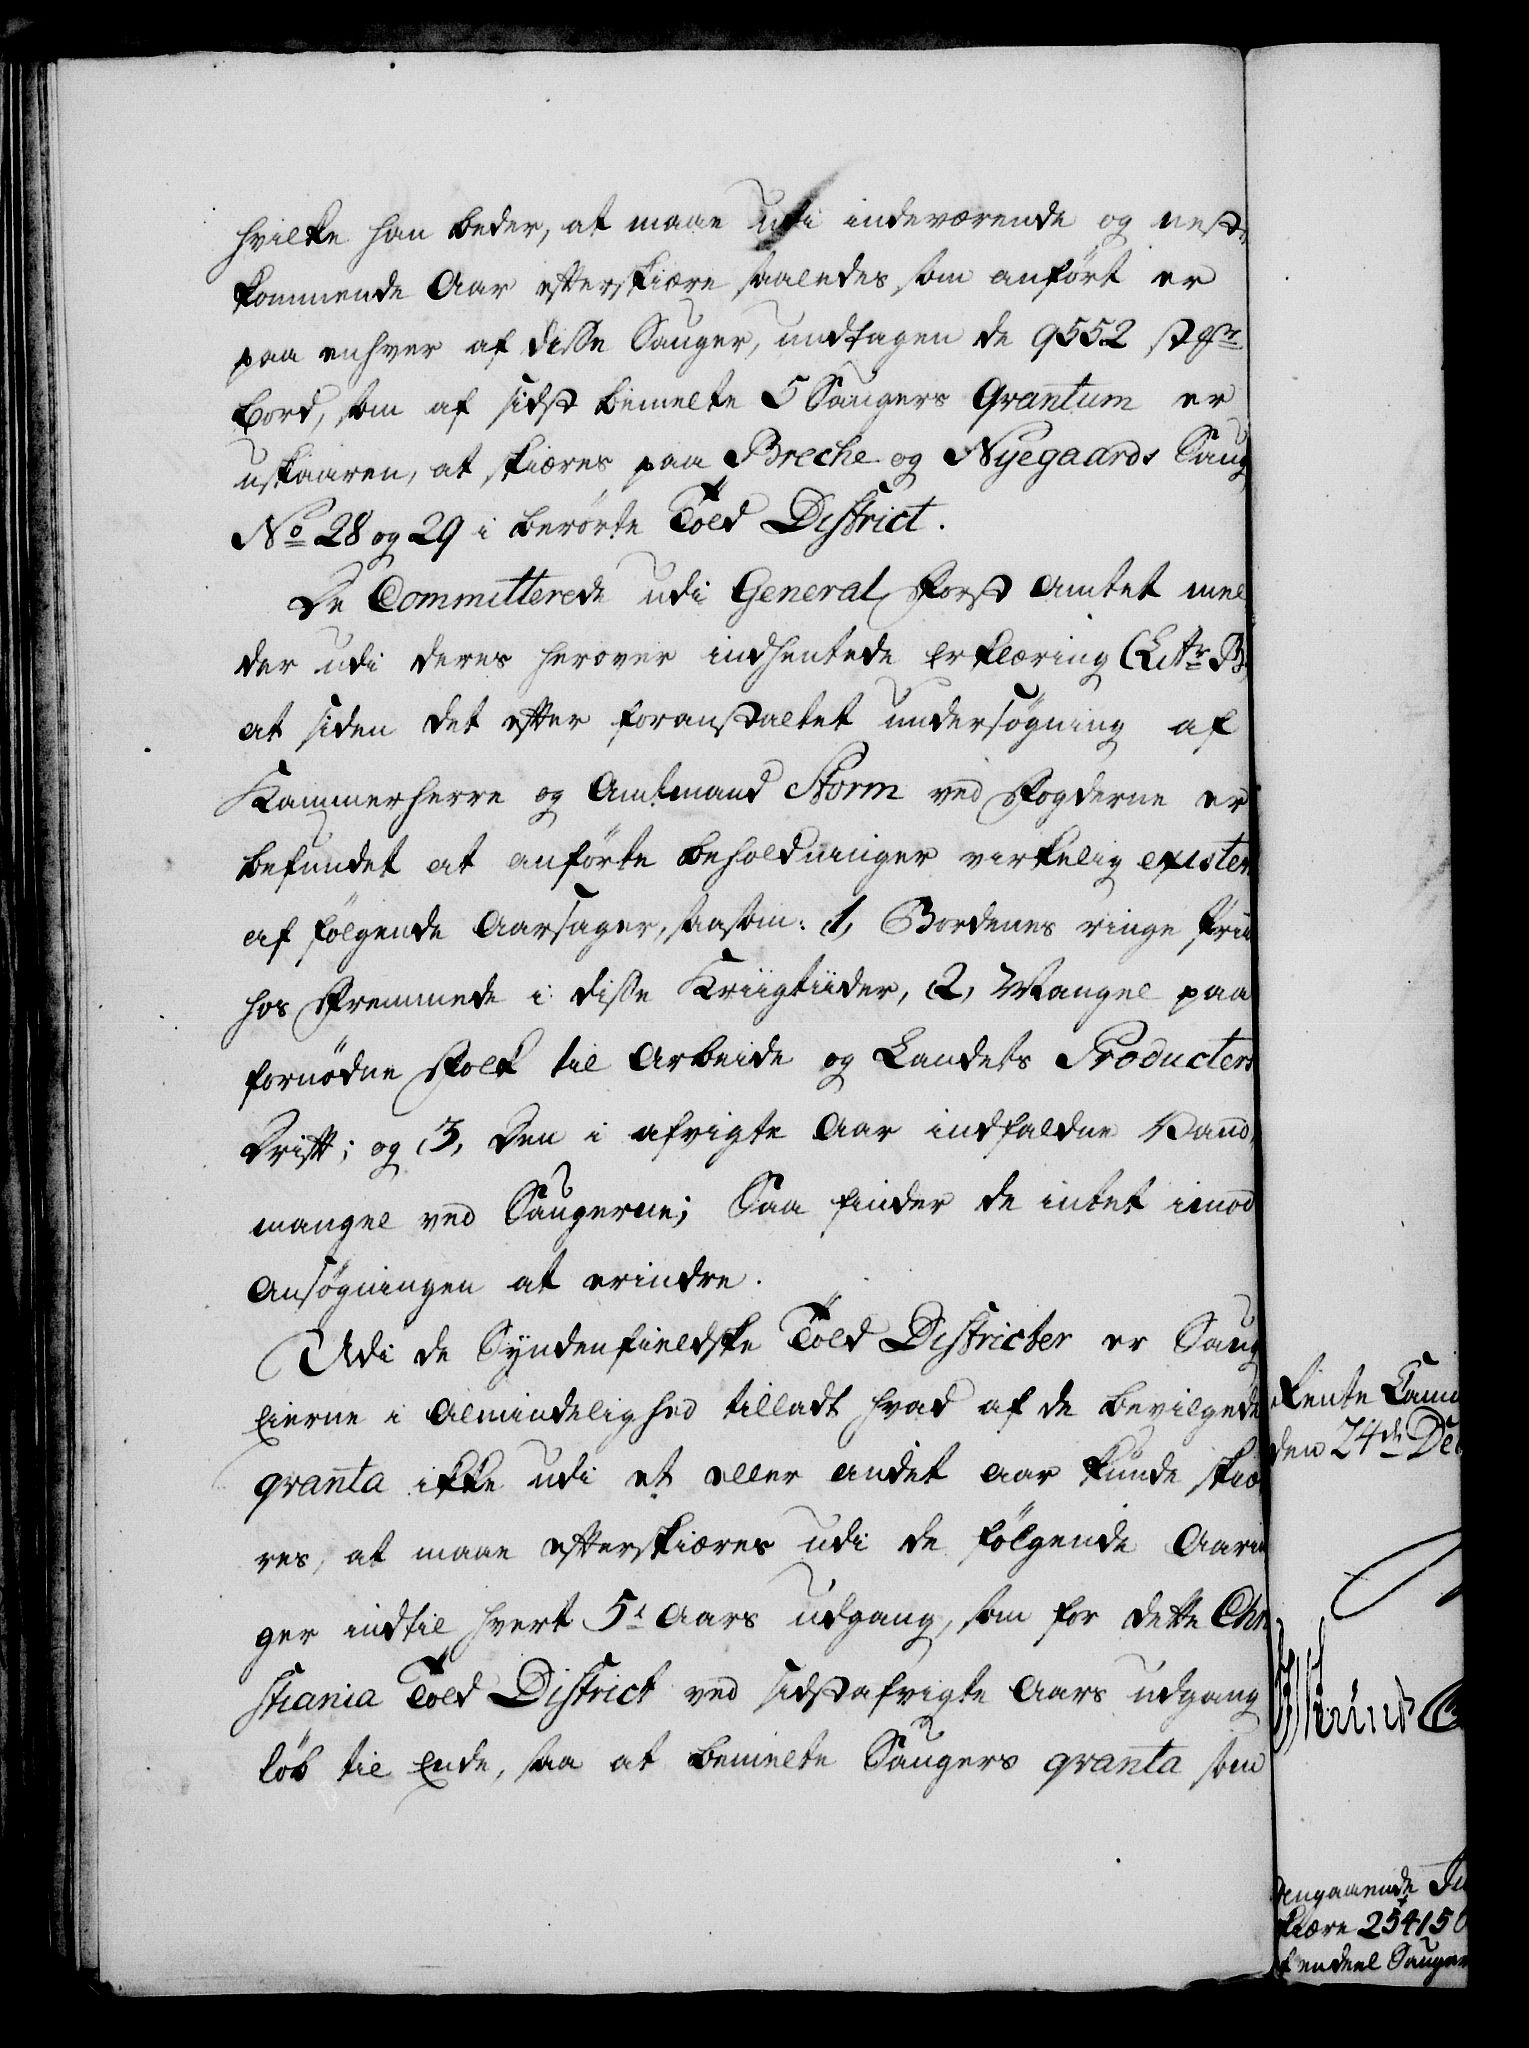 hvilke han beder, at maae udi indeværende og nest-
kommende Aar efterskiære saaledes som anført er
paa enhver af disse Sauger, undtagen de 9552 st
Bord, som af sidst bemelte 5 Saugers Qvantum er
uskaaren, at skiæres paa Breche og Nyegaards Saug
No 28 og 29 i berørte Told District.
De Committerede udi General Forst Amtet mel
der udi deres herover indhentede Erklæring (Litr B
at siden det efter foranstaltet undersøgning af
Kammerherre og Amtmand Storm ved Fogderne er
befundet at anførte beholdninger virkelig existere
af følgende Aarsager, saasom: 1, Bordenes ringe Priis
hos Fremmede i disse Kriigtiider, 2, Mangel paa
fornødne Folk til Arbeide og Landets Producters
Drift; og 3, Den i afvigte Aar indfaldne Vand,
mangel ved Saugerne; Saa finder de intet imod
Ansøgningen at erindre.
Udi de Syndenfieldske Told Districter er Saug
Eierne i Almindelighed tilladt hvad af de bevilgede
qvanta ikke udi et eller andet Aar kunde skiæ
res, at maae efterskiæres udi de følgende Aarin
ger indtil hvert 5te Aars udgang, som for dette Chri
stiania Told District ved sidstafvigte Aars udgang
løb til Ende, saa at bemelte Saugers qvanta som
Rente Cam
den 24de De
dengaaende
skiære 254150
af endeel Sauger